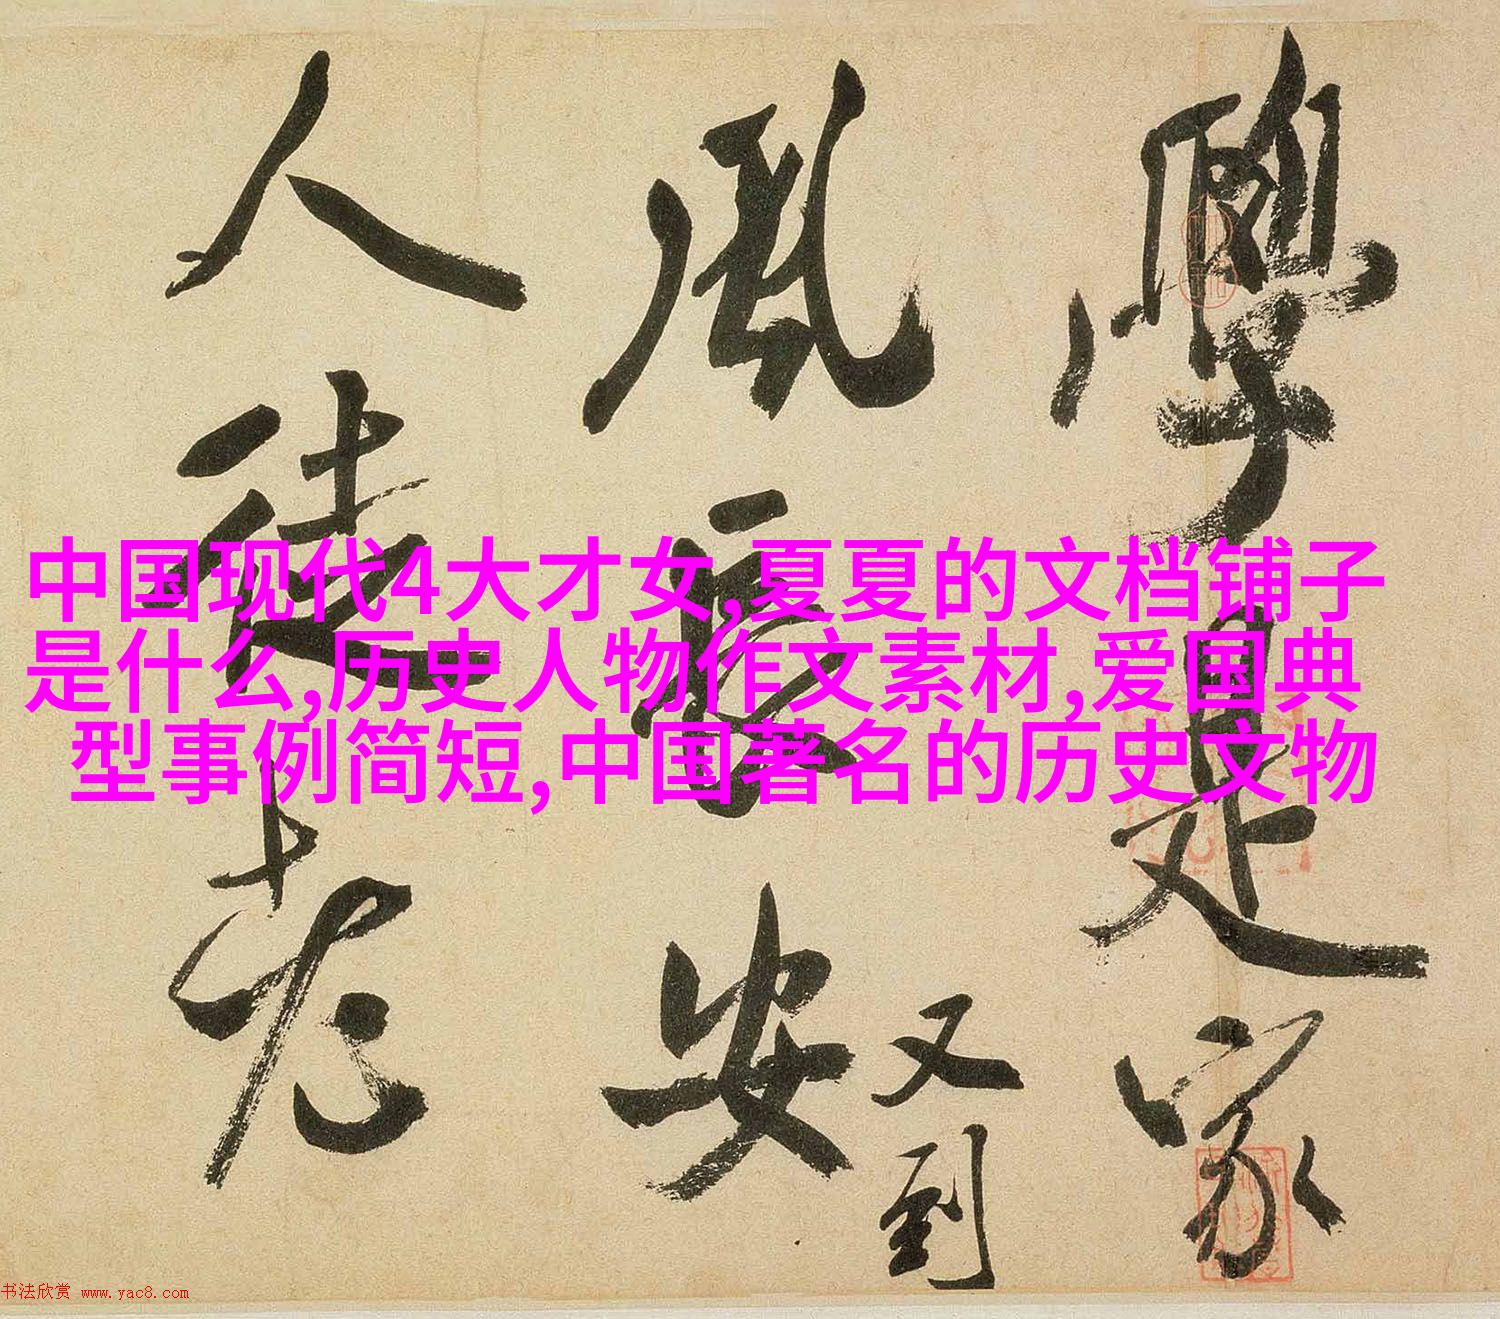 學是家
風長安
又到
人徒老
中国现代4大才女,夏夏的文档铺子
是什么,历史人物作文素材,爱国典
型事例简短,中国著名的历史文物
书法欣赏 www.yac8.com